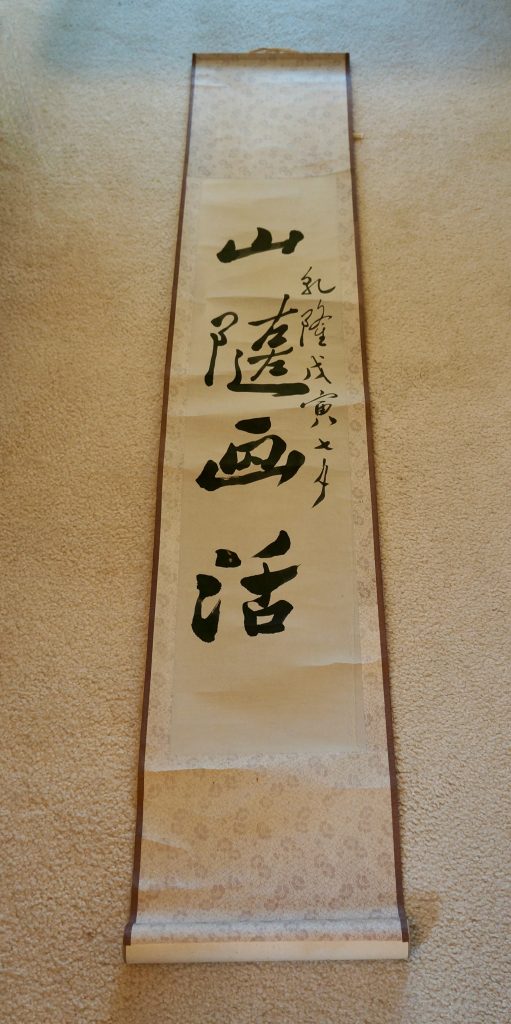 乾隆戊寅七月
山隨画活